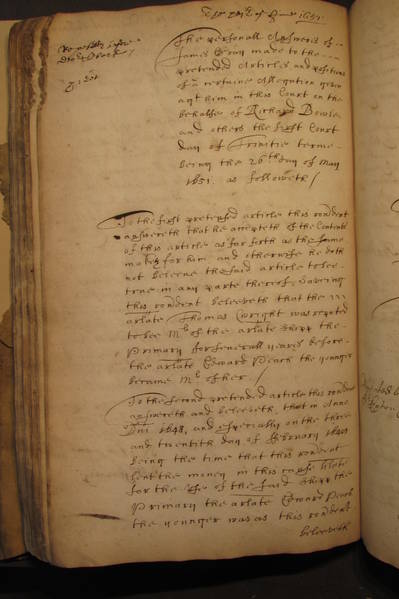 The of June 1651.
The personall Answeres of
James Gray made to the
pretended Articles and positions
of a certaine Allegation given
agt him in this Court on the
behalfe of Richard Bowle
and others the first Court
day of Trinitie terme
being the 26th day of May
1651. as followeth /
To the first pretended article this rondent
answereth that he accepteth of the Contents
of this article as far forth as the same
maketh for him and otherwise he doth
not beleeve the said article to bee
true in any parte thereof Saveing
this rondent beleeveth that the
arlate Thomas Wright was reputed
to bee Mr of the arlate shipp the
Primary for severall yeares before
the arlate Edward Peach the younger
became Mr of her /
To the second pretended article this rondent
answereth and beleeveth, that in Anno
Dni 1648, and especially on the three
and twentith day of February 1648
being the time that this rondent
lent the money in this cause libelate
for the use of the said shipp the
Primary the arlate Edward Peach
the younger was as this rondent
beleeveth